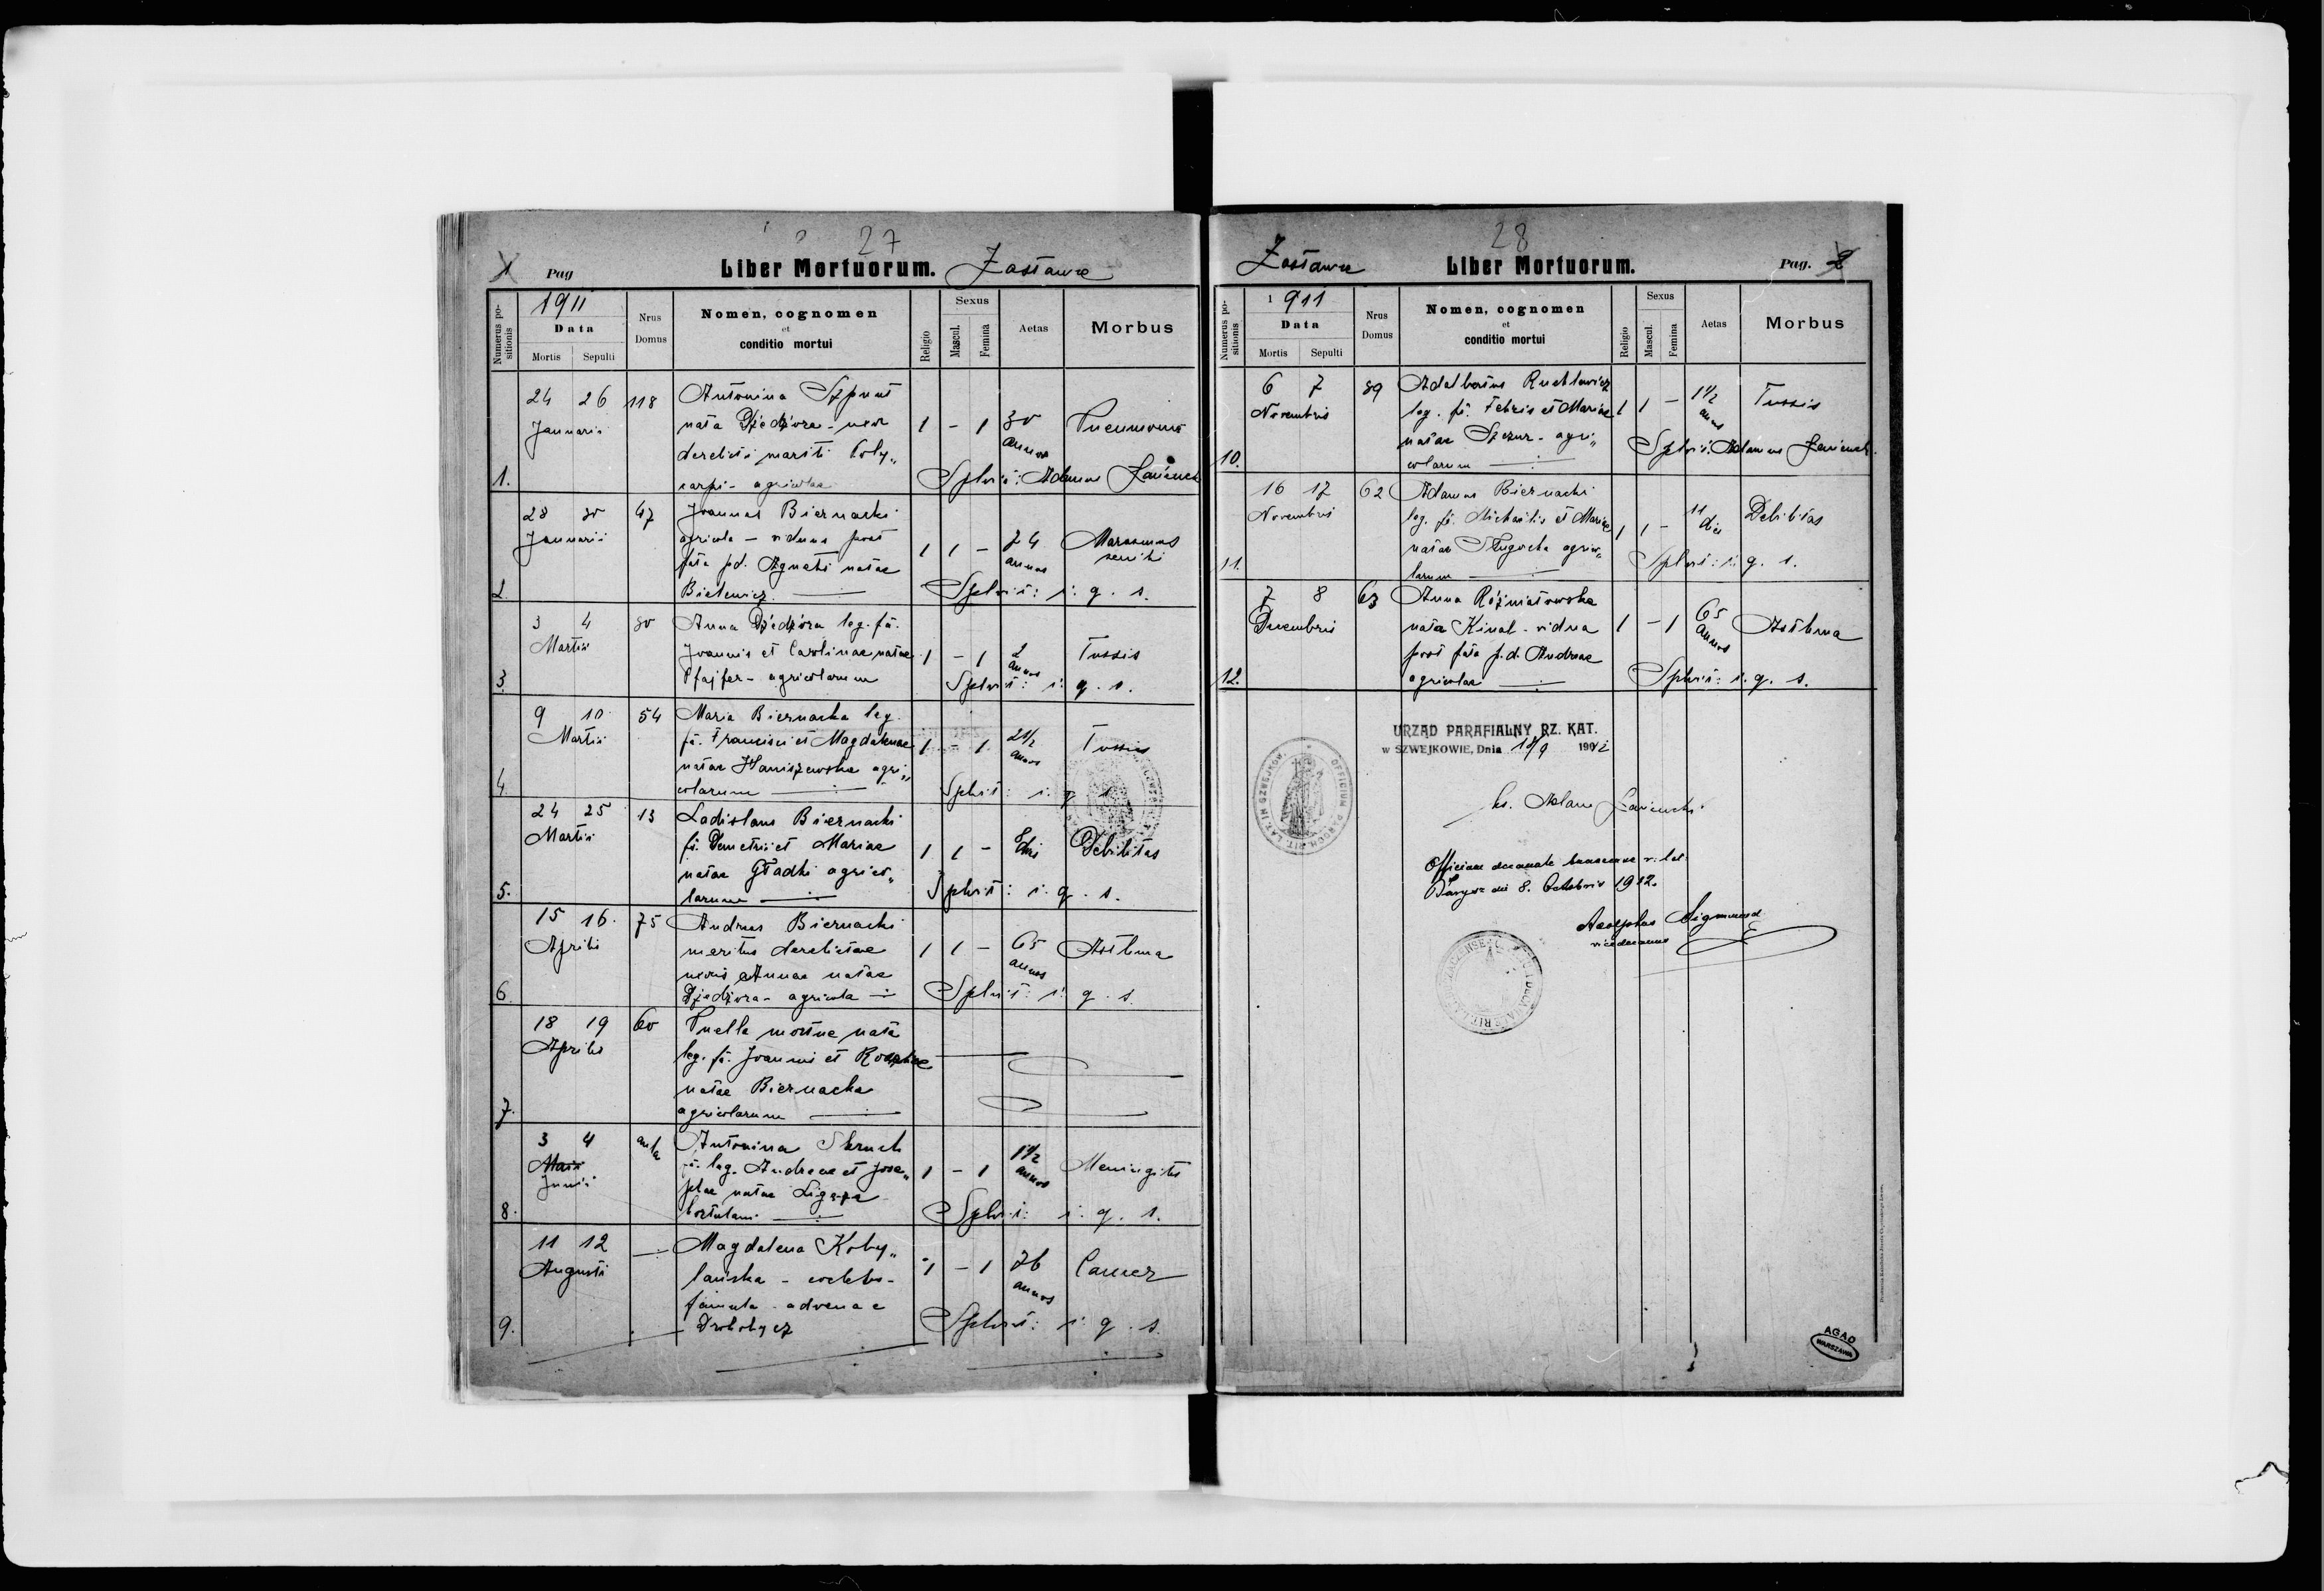 27
1 Pag Liber Mortuorum. Zastawce
Numerus positionis
1911
Data
Mortis Sepulti
Nrus Domus
Nomen, cognomen
et
conditio mortui
Religio
Sexus
Mascul. Femina
Aetas
Morbus
24 26 118 Antonina Szpunt
Januarii nata Dziedzora - uxor 1 - 1 30 annos Pneumonia
derelicti mariti Poly„
1. carpi - agricolae Splvit: Adamus
28 30 47 Joannes Biernacki
Januarii agricola - viduus post 1 1 - 74 annos Marasmus senili
fata pd. Agnetis natae
2. Bielewicz Splvit: i. q. s.
3 4 80 Anna Dziedzora leg. fa.
Martii Joannis et Carolinae natae 1 - 1 2 annos Tussis
3. Pfajfer - agricolarum Splvit: i. q. s.
9 10 54 Maria Biernacka leg.
Martii fa. Francisci et Magdalenae 1 - 1 2 1/2 annos Tussis
natae Haniszewska agri„
4. colarum Splvit: i. q. s.
24 25 13 Ladislaus Biernacki
Martii fi. Demetrii et Mariae 1 1 - 8 dies Debilitas
natae Gładki agrico„
5. larum Splvit: i. q. s.
15 16. 75 Andreas Biernacki
Aprilis maritus derelictae 1 1 - 65 annos Asthma
uxoris Annae natae
6. Dziedzora - agricola Splvit: i. q. s.
18 19 60 Puella mortue nata
Aprilis leg. fa. Joannis et Rosaliae
natae Biernacka
7. agricolarum
3 4 Antonina Skruch
Maii fa. leg. Andreae et Jose„ 1 - 1 1 1/2 annos Meningitis
Junii phae natae Ligęza
8. hortulani Splvit: i. q. s.
11 12 - Magdalena Koby„
Augusti lańska - coelebs - 1 - 1 76 annos Cancer
famula - advena e
9. Drohobycz Splvit: i. q. s.
28
Zastawce Liber Mortuorum. Pag. 2
Numerus positionis
1911
Data
Mortis Sepulti
Nrus Domus
Nomen, cognomen
et
conditio mortui
Religio
Sexus
Mascul. Femina
Aetas
Morbus
6 7 89 Adalbertus Ruchlewicz
Novembris leg. fi. Febris et Mariae 1 1 - 1 1/2 annos Tussis
natae Szczur - agri„
10. colarum Splvit: Adamus
16 17 62 Adamus Biernacki
Novembris leg. fi. Michaelis et Mariae 1 1 - 11 dies Debilitas
natae Długocka agrico„
11. larum Splvit: i. q. s.
7 8 63 Anna Rożniatowska
Decembris nata Kinal - vidua 1 - 1 65 annos Asthma
post fata p.d. Andreae
12. agricolae Splvit: i. q. s.
URZĄD PARAFIALNY RZ. KAT.
w SZWEJKOWIE, Dnia 1912
OFFICIUM PAROCH. RIT. LAT. IN SZWEJKÓW.
ks. Adam
Officium decanale buczacense r. lat.
Barysz die 8. Octobris 1912.
Adolphus Sigmund
vicedecanus
AGAD
WARSZAWA